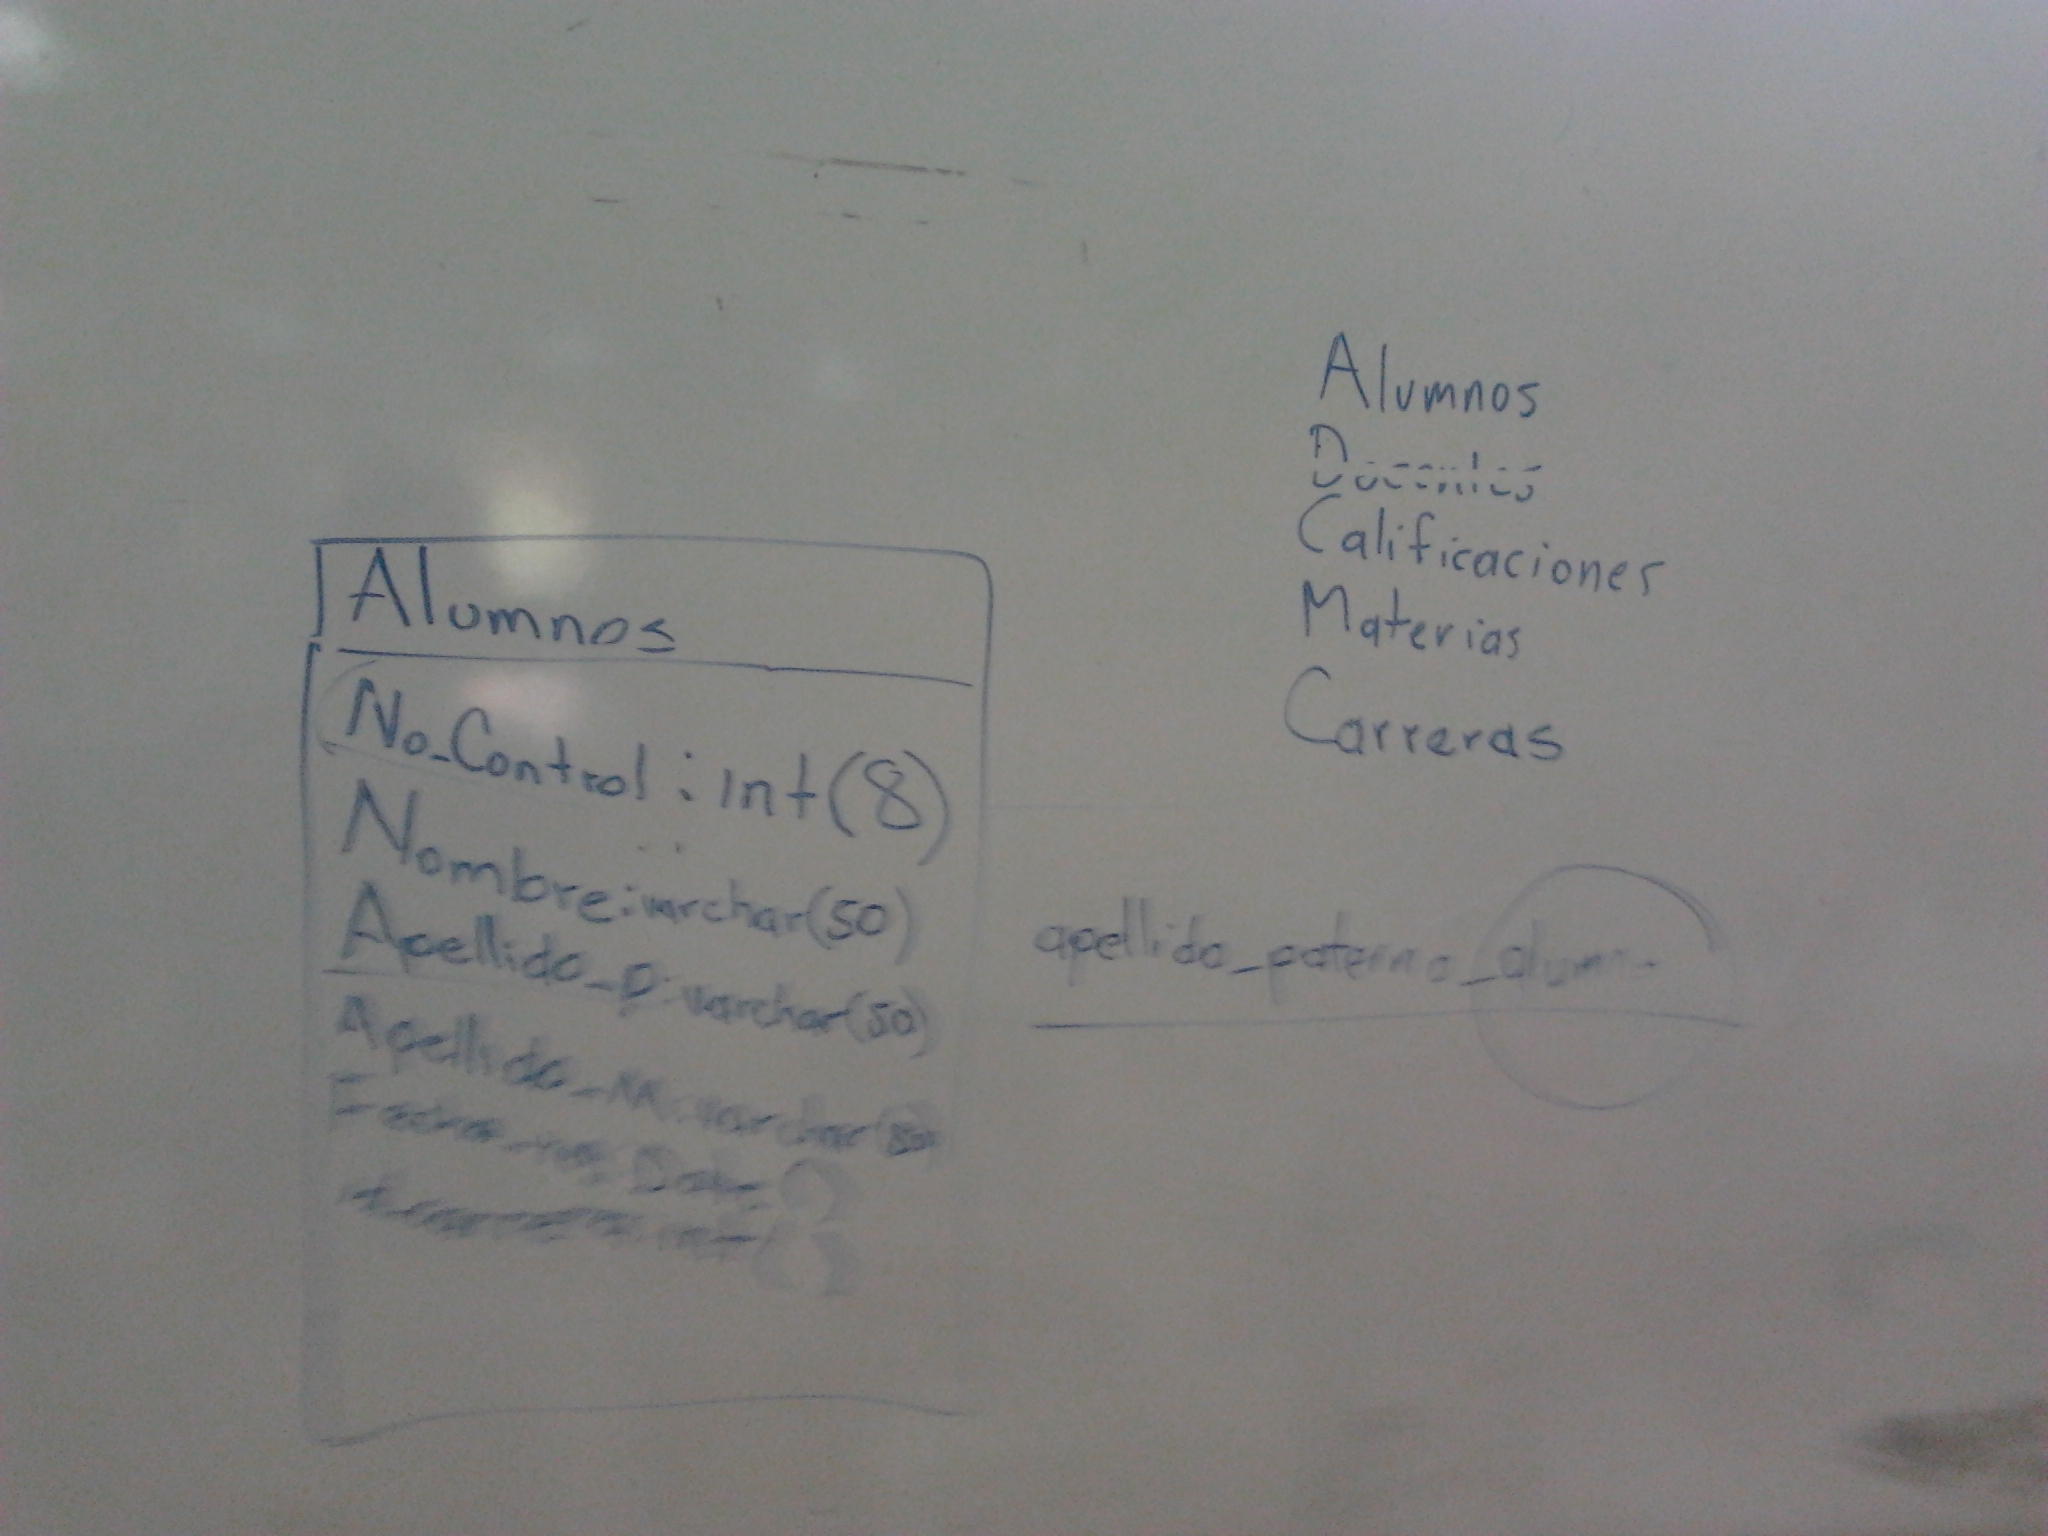 Alumnos
No_Control : int(8)
Nombre: varchar(50)
Apellido_p: varchar(50)
Apellido_M: varchar(50)
Alumnos
Docentes
Calificaciones
Materias
Carreras
apellido_paterno_alumno